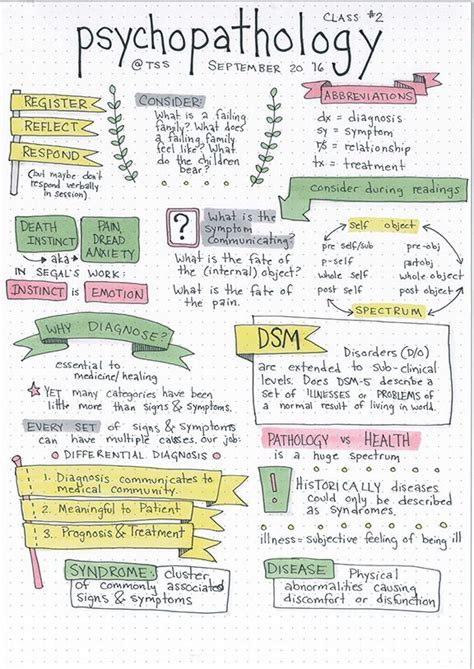 CLASS #2
psychopathology
@TSS SEPTEMBER 20 '16
REGISTER
REFLECT
RESPOND
(but maybe don't
respond verbally
in session)
CONSIDER:
What is a failing
family? What does
a failing family
feel like? What
do the children
bear?
ABBREVIATIONS
dx = diagnosis
sy = symptom
= relationship
tx = treatment
consider during readings
DEATH
INSTINCT
PAIN,
DREAD
ANXIETY
aka
IN SEGAL'S WORK:
INSTINCT is EMOTION
?
What is the
symptom
communicating?
What is the fate of
the (internal) object?
What is the fate of
the pain.
self object
pre self/sub pre-obj
p-self partobj
whole self whole object
post self post object
SPECTRUM
WHY DIAGNOSE?
essential to
medicine/healing
YET many categories have been
little more than signs & symptoms.
EVERY SET of signs & symptoms
can have multiple causes. our job:
DIFFERENTIAL DIAGNOSIS
1. Diagnosis communicates to
medical community.
2. Meaningful to Patient
3. Prognosis & Treatment
SYNDROME: cluster
of commonly associated
signs & symptoms
DSM
Disorders (D/O)
are extended to sub-clinical
levels. Does DSM-5 describe a
set of ILLNESSES or PROBLEMS of
a normal result of living in world.
PATHOLOGY vs HEALTH
is a huge spectrum
!
HISTORICALLY diseases
could only be described
as syndromes.
illness = subjective feeling of being ill
DISEASE: Physical
abnormalities causing
discomfort or disfunction